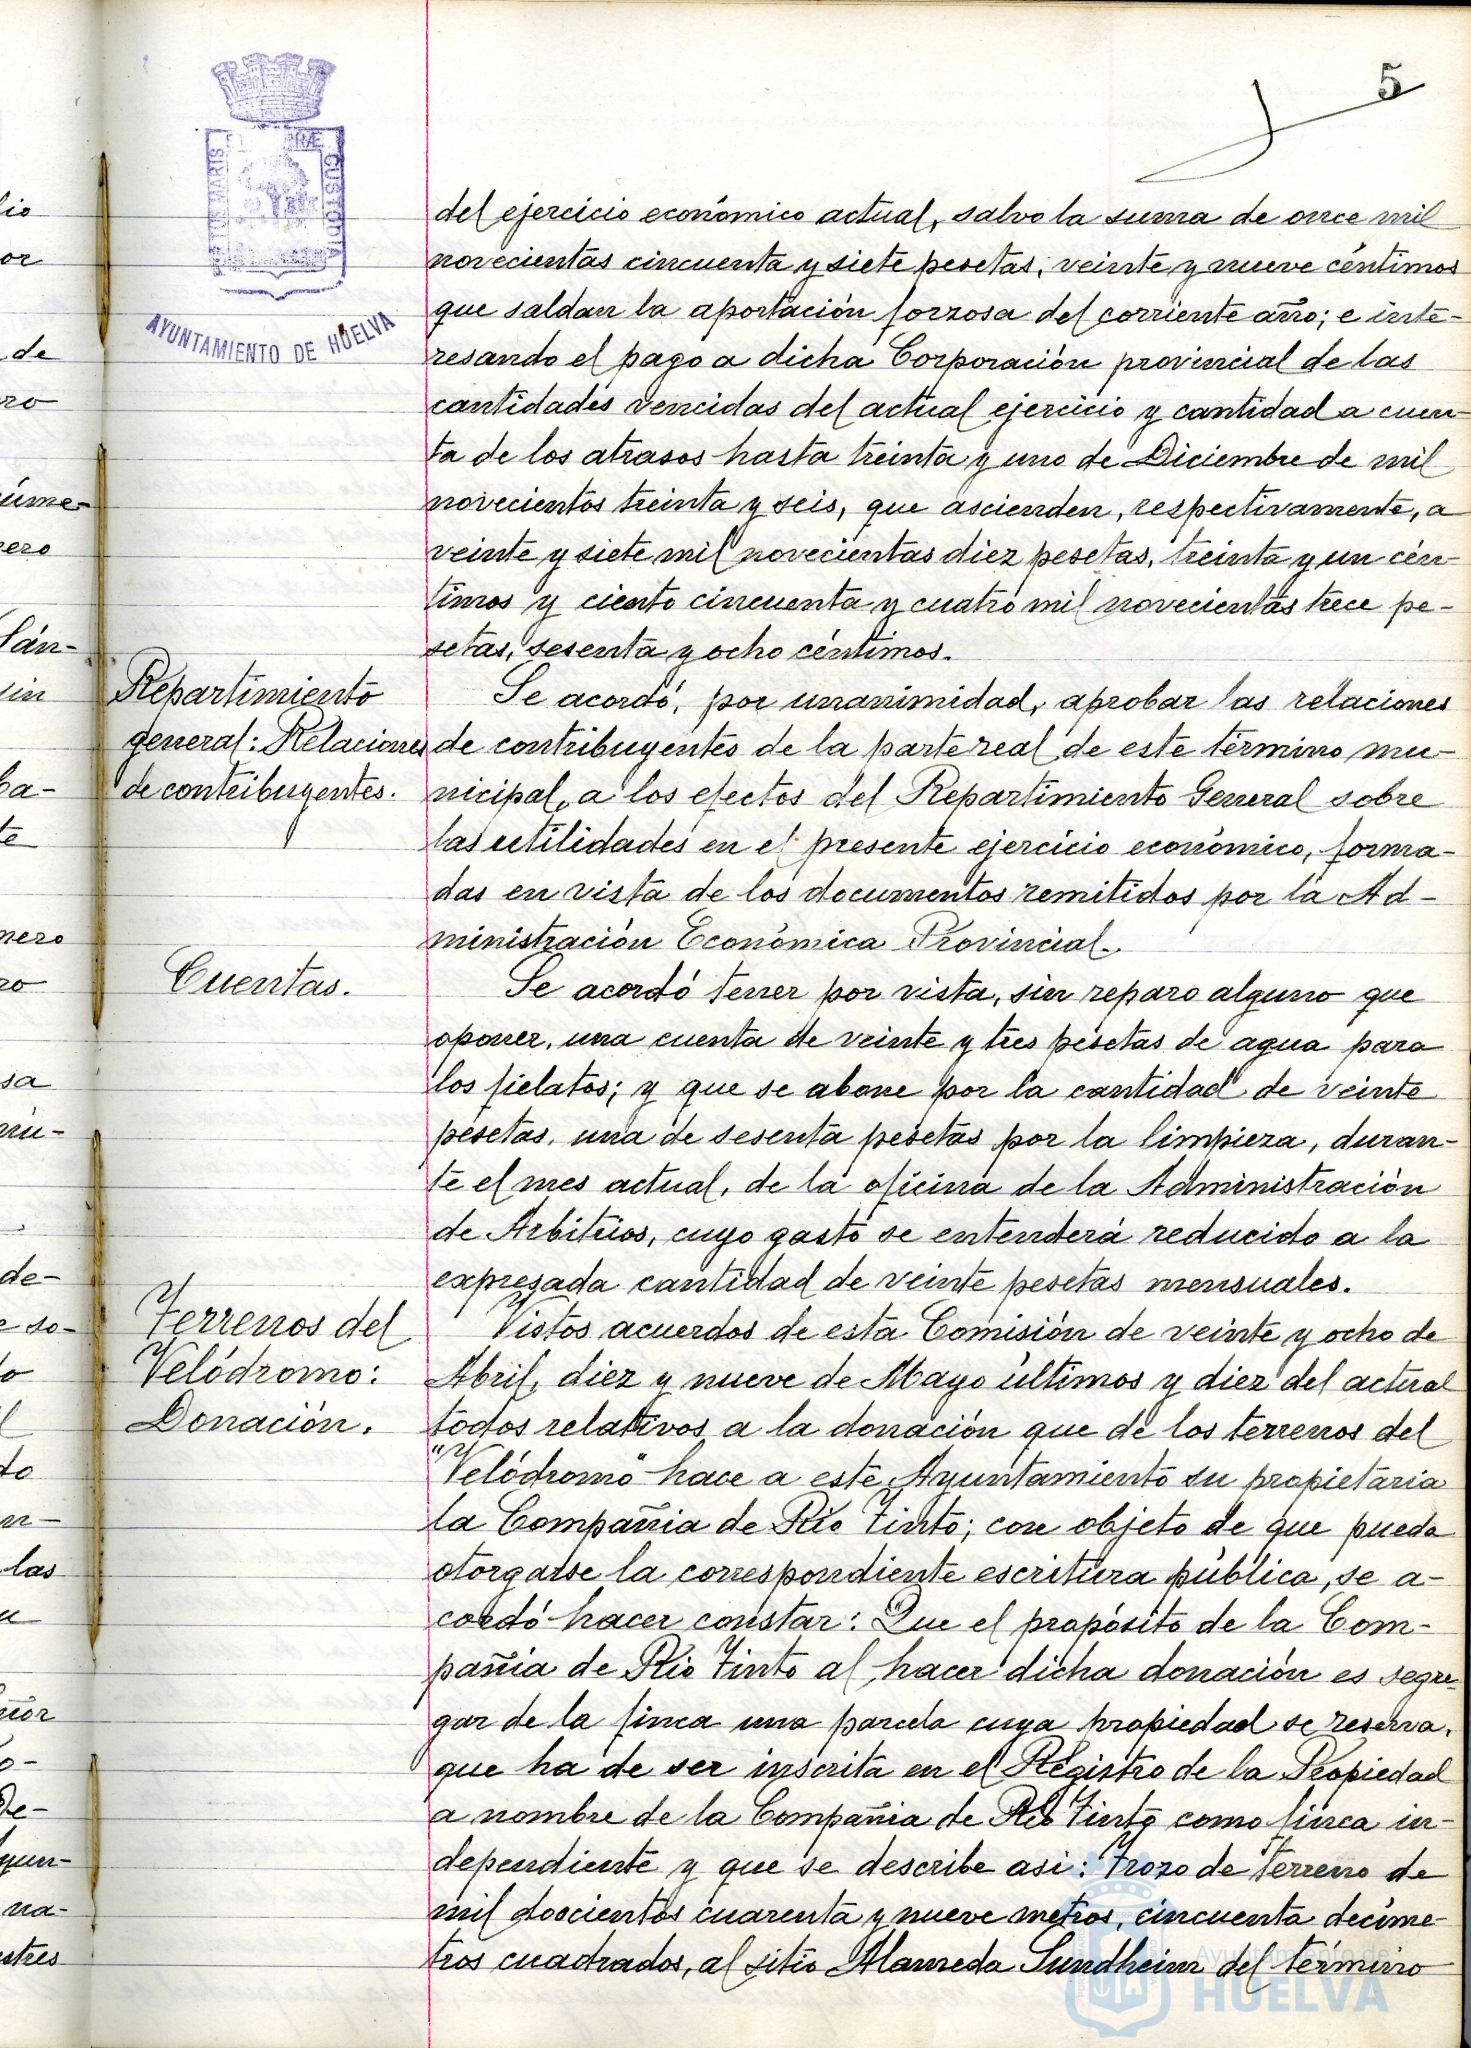 5
PORTUS MARIS ET TERRÆ CUSTODIA
AYUNTAMIENTO DE HUELVA
del ejercicio económico actual, salvo la suma de once mil
novecientas cincuenta y siete pesetas, veinte y nueve céntimos
que saldan la aportación forzosa del corriente año; e inte-
resando el pago a dicha Corporación provincial de las
cantidades vencidas del actual ejercicio y cantidad a cuen-
ta de los atrasos hasta treinta y uno de Diciembre de mil
novecientos treinta y seis, que ascienden, respectivamente, a
veinte y siete mil novecientas diez pesetas, treinta y un cén-
timos y ciento cincuenta y cuatro mil novecientas trece pe-
setas, sesenta y ocho céntimos.
Repartimiento
general: Relaciones
de contribuyentes.
Se acordó, por unanimidad, aprobar las relaciones
de contribuyentes de la parte real de este término mu-
nicipal, a los efectos del Repartimiento General sobre
las utilidades en el presente ejercicio económico, forma-
das en vista de los documentos remitidos por la Ad-
ministración Económica Provincial.
Cuentas.
Se acordó tener por vista, sin reparo alguno que
oponer, una cuenta de veinte y tres pesetas de agua para
los fielatos; y que se abone por la cantidad de veinte
pesetas, una de sesenta pesetas por la limpieza, duran-
te el mes actual, de la oficina de la Administración
de Arbitrios, cuyo gasto se entenderá reducido a la
expresada cantidad de veinte pesetas mensuales.
Terrenos del
Velódromo:
Donación.
Vistos acuerdos de esta Comisión de veinte y ocho de
Abril, diez y nueve de Mayo últimos y diez del actual
todos relativos a la donación que de los terrenos del
"Velódromo" hace a este Ayuntamiento su propietaria
la Compañia de Rio Tinto; con objeto de que pueda
otorgarse la correspondiente escritura pública, se a-
cordó hacer constar: Que el propósito de la Com-
pañia de Rio Tinto al hacer dicha donación es segre-
gar de la finca una parcela cuya propiedad se reserva,
que ha de ser inscrita en el Registro de la Propiedad
a nombre de la Compañia de Rio Tinto como finca in-
dependiente y que se describe asi: Trozo de terreno de
mil doscientos cuarenta y nueve metros, cincuenta decíme-
tros cuadrados, al sitio Alameda Sundheim del término
Ayuntamiento de
HUELVA